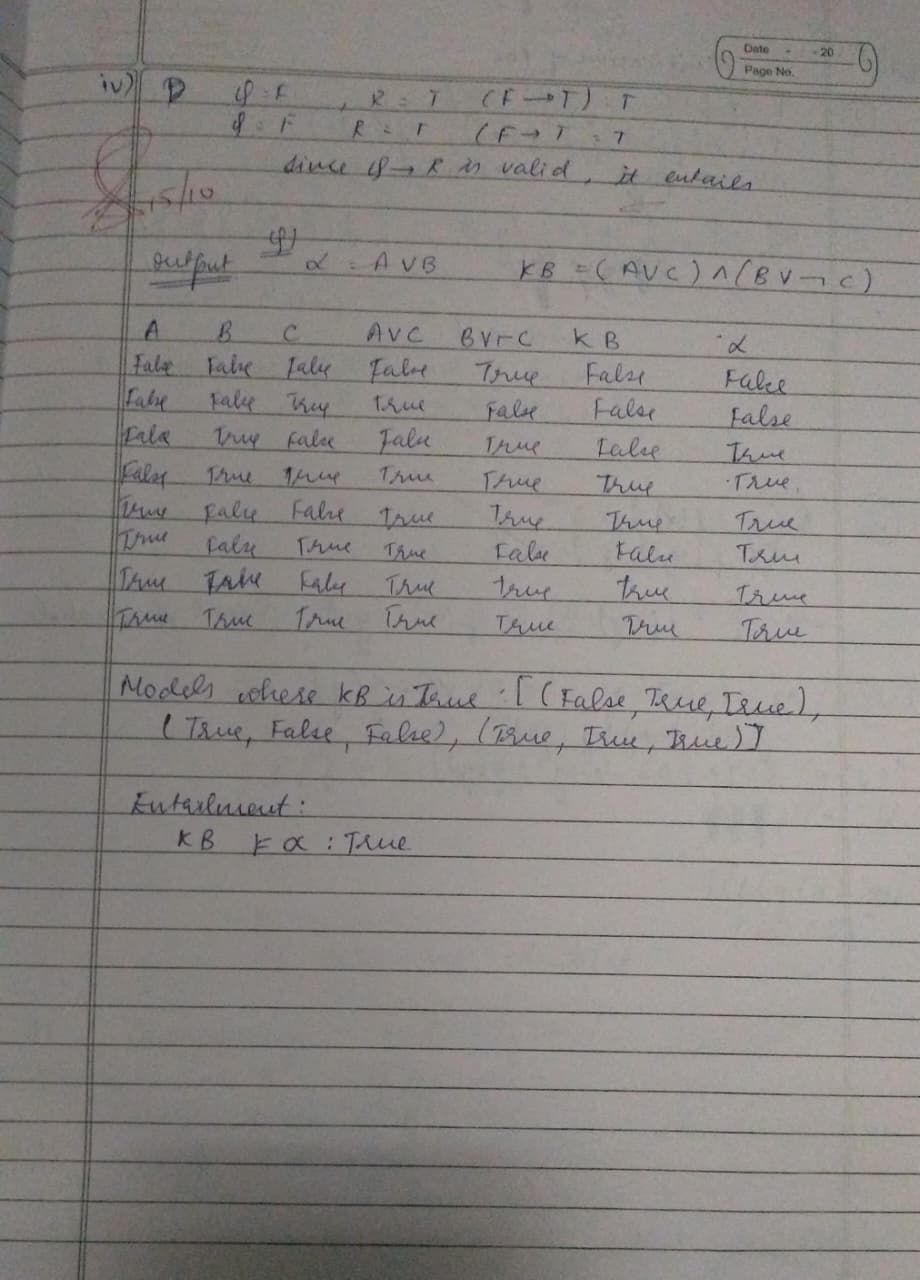 Date - - 20
Page No.
iv) φ = F , R = T (F → T) : T
φ = F R = T (F → T = T
since φ → R is valid, it entails
,5/10
output φ) α = A V B KB = (A V C) ∧ (B V ¬ C)
A B C A V C B V ¬ C K B α
False False False False True False False
False False True True False False False
False True False False True False True
False True True True True True True
True False False True True True True
True False True True False False True
True False True True True True
True True True True True True True
Models where KB is True : [ (False, True, True),
(True, False, False), (True, True, True)]
Entailment :
KB ⊨ α : True